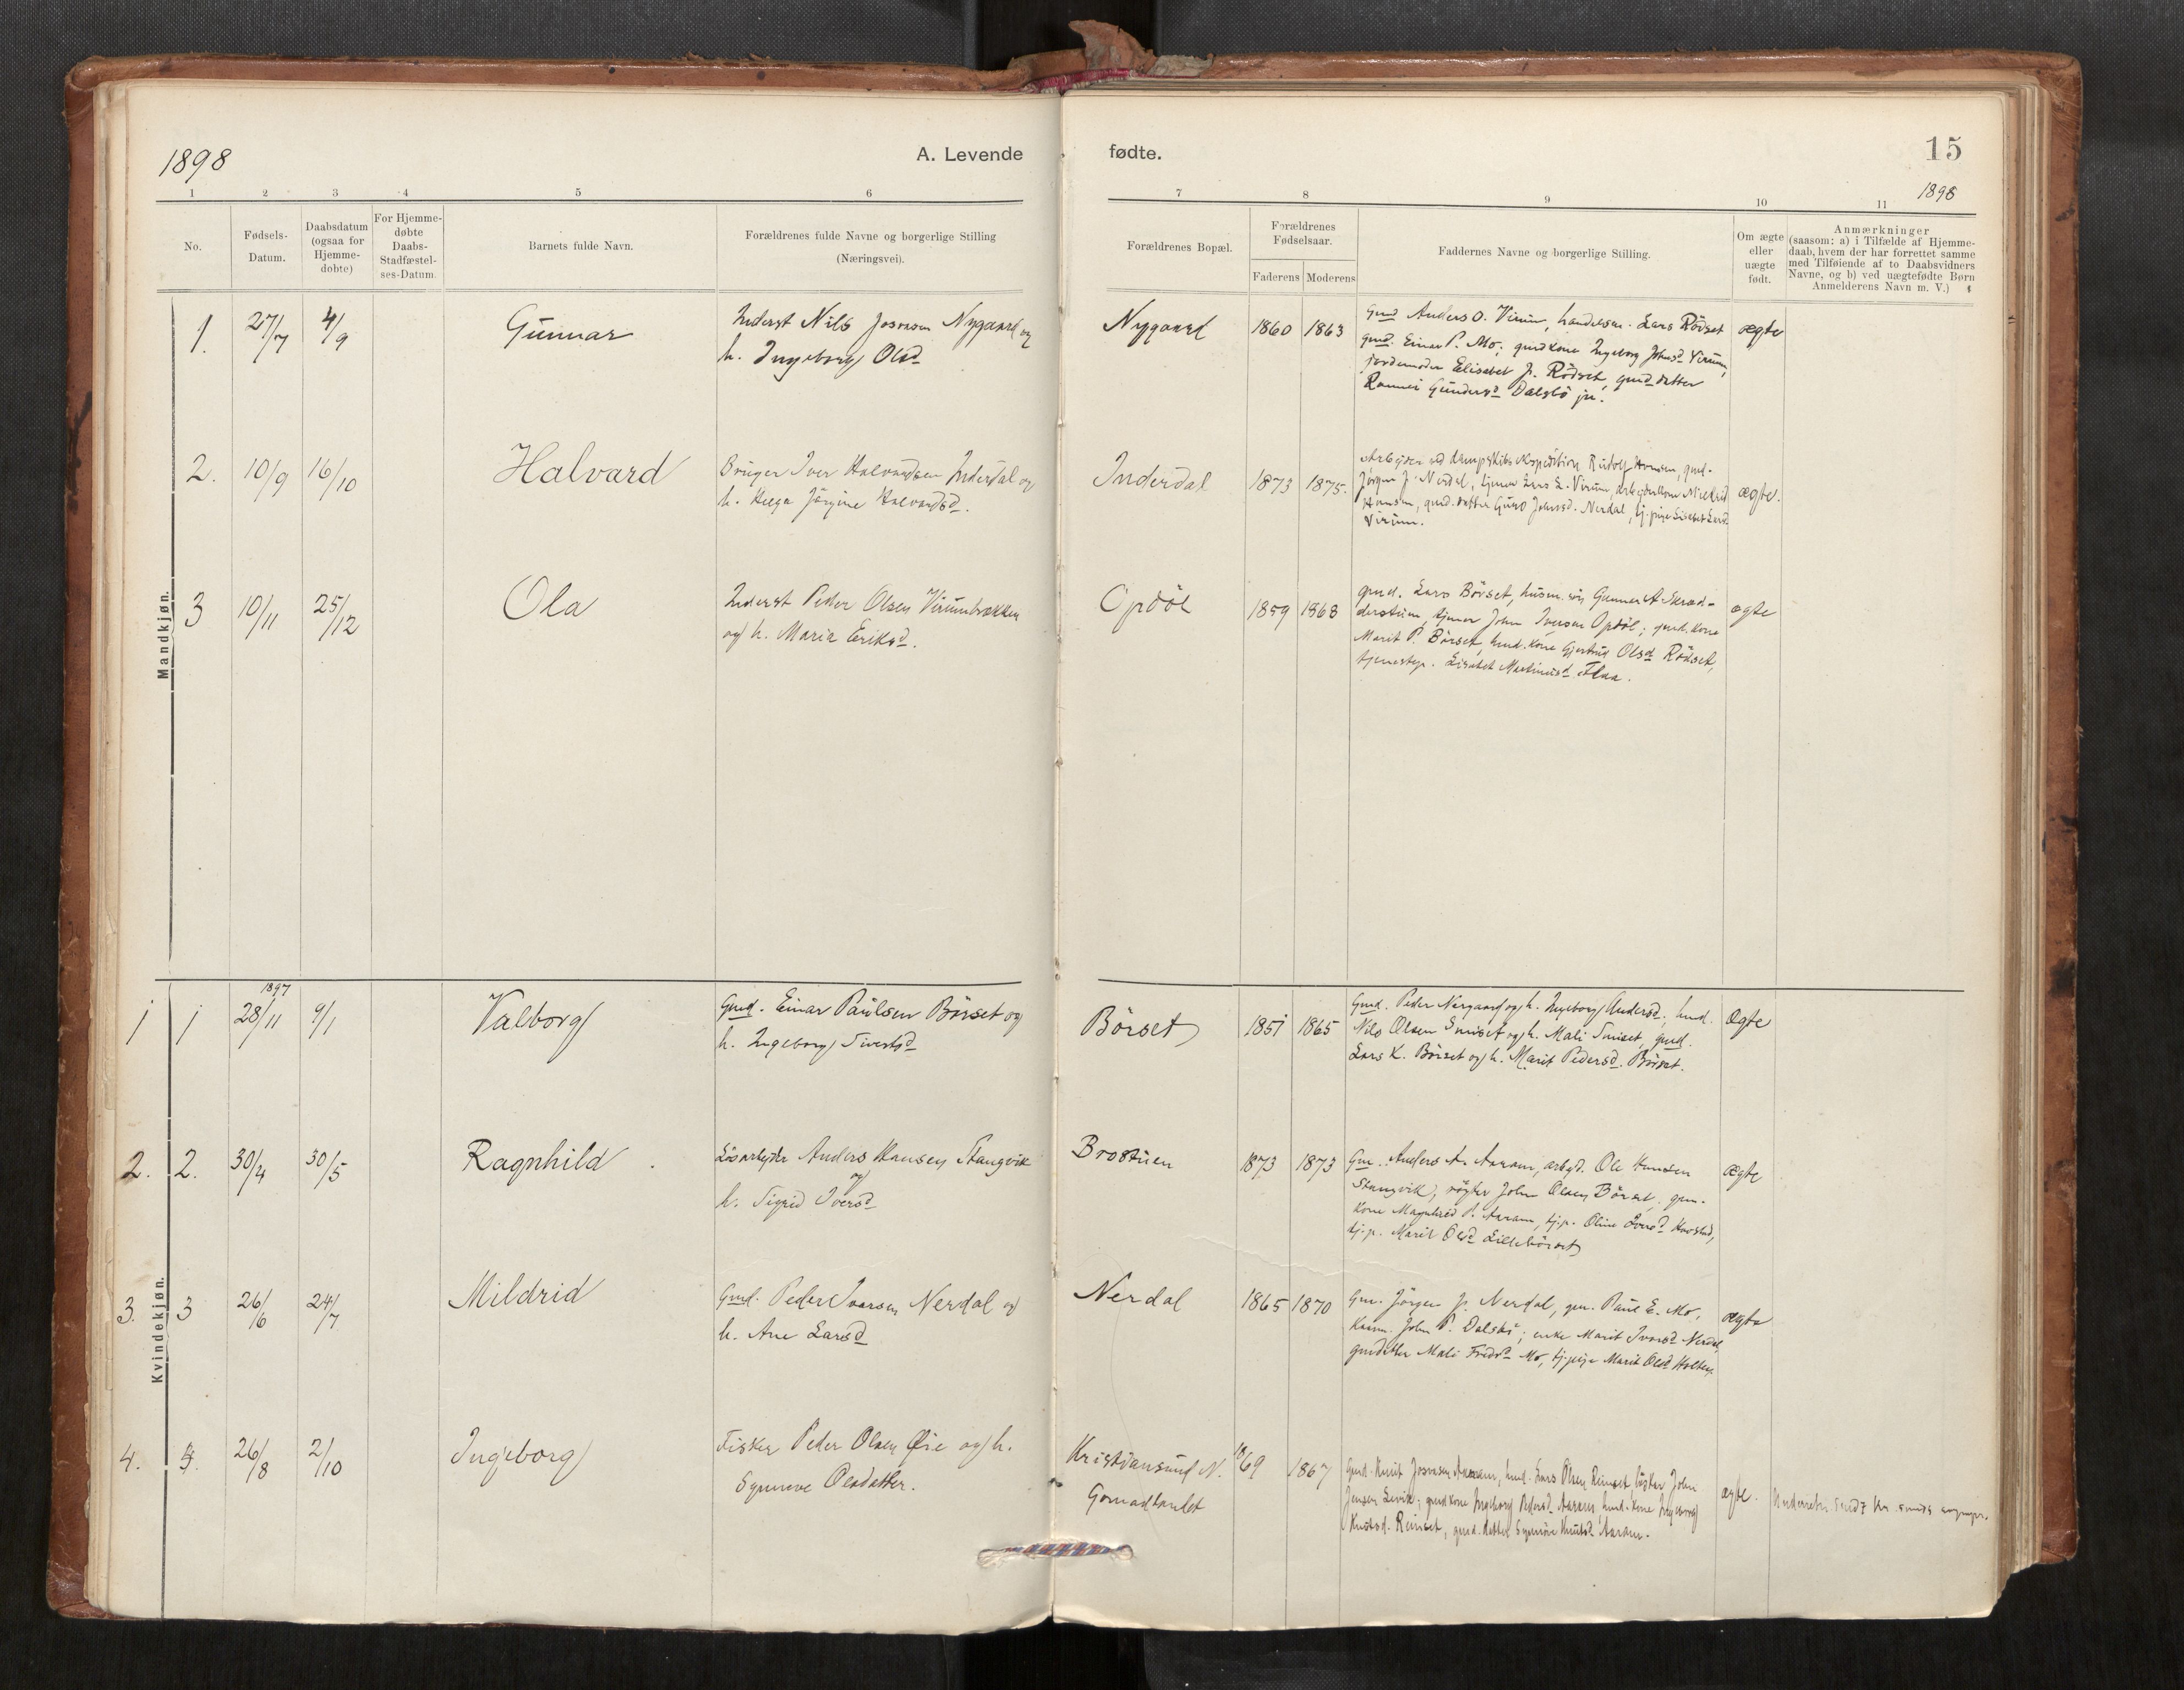 1898
A. Levende
fødte.
15
1898
1 2 3 4 5 6 7 8 9 10 11
No.
Fødsels-
Datum.
Daabsdatum
(ogsaa for
Hjemme-
døbte)
For Hjemme-
døbte
Daabs-
Stadfæstel-
ses-Datum.
Barnets fulde Navn.
Forældrenes fulde Navne og borgerlige Stilling
(Næringsvei).
Forældrenes Bopæl.
Forældrenes
Fødselsaar.
Faderens Moderens
Faddernes Navne og borgerlige Stilling.
Om ægte
eller
uægte
født.
Anmærkninger
(saasom: a) i Tilfælde af Hjemme-
daab, hvem der har forrettet samme
med Tilføiende af to Daabsvidners
Navne, og b) ved uægtefødte Børn
Anmelderens Navn m. V.)
Mandkjøn.
1. 27/7 4/9 Gunnar
Inderst Nils Nygaard og
h. Ingeborg Olsd
Nygaard 1860 1863
Gmd Anders O. Virum, handelsm. Lars Rødset
gmd. Einar P. Mo; gmdkone Ingeborg Johnsd Virum,
jordemoder Elisabet J. Rødset, gmd.datter
Gundersd Dalsbö
ægte
2. 10/9 16/10 Halvard
Bruger Iver Halvardsen Inderdal og
h. Helga Jörgine Halvardsd.
Inderdal 1873 1875.
Arbeider ved dampskibsekspedition Rudolf Hansen, gmd.
Jørgen J. Nerdal, tjener Lars L. Virum, arbeiderkone Mildrid
Hansen, gmd. datter Guro Johnsd. Nerdal, tj. pige Lisabet Larsd
Virum.
ægte.
3 10/11 25/12 Ola
Inderst Peder Olsen Virumbrækken
og h. Maria Eriksd.
Opdöl 1859 1868
gmd. Lars Börset, husm. søn Gunnar A. Skræd-
derstuen, tjener John Iversen Opdöl; gmd. kone
Marit P. Börset, hmd. kone Gjertrud Olsd Rödset,
tjenestep. Lisabet Martinusd. Flaa.
ægte
Kvindekjøn.
1 1 1897 28/11 9/1 Valborg
Gmd. Einar Paulsen Börset og
h. Ingeborg Siverts d
Börset 1851 1865
Gmd. Peder Nergaard og h. Ingeborg Andersd; hmd.
Nils Olsen Smiset og h. Mali Smiset, gmd.
Lars K. Börset og h. Marit Pedersd. Börset.
Ægte
2. 2. 30/4 30/5 Ragnhild
Lösarbejder Anders Hansen Stangvik
og
h. Sigrid Iversd
Brostuen 1873 1873
Gm. Anders A. Aaram, arbejd. Ole Hansen
Stangvik, røgter John Olsen Börset, gm.
kone Magnhild P. Aaram, tj.p. Oline Iversd
tj. p. Marit Olsd Lillebörset
Ægte
3. 3 26/6 24/7 Mildrid
Gmd. Peder Ivarsen Nerdal og
h. Ane Larsd
Nerdal 1865 1870
Gm. Jörgen J. Nerdal, gm. Paul E. Mo,
John P. Dalsbö; enke Marit Ivarsd Nerdal,
gmdatter Mali Fredr.d Mo, tj.pige Marit Olsd
ægte
4. 4. 26/8 2/10 Ingeborg
Fisker Peder Olsen Øie og h.
Synnøve Olsdatter.
Kristiansund N.
Gomadlandet
1869 1867
Gmd. Knut Aaram, hmd. Lars Olsen Reinset John
Jensen gmdkone Ingeborg Pedersd Aaram, hmd. kone Ingeborg
Knutsd. Reinset, gmd. datter Synnöve Knutsd Aaram.
ægte.
Underretn. sendt Kr. sunds sognepr.